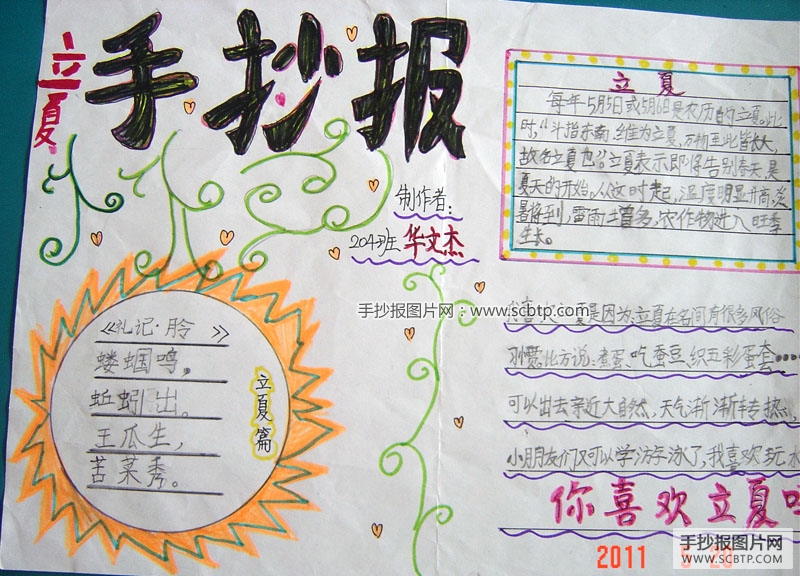 立夏
手抄报
制作者:
204班 华文杰
立夏
每年5月5日或5月6日是农历的立夏。此
时,“斗指东南,维为立夏,万物至此皆长大,
故名立夏也。”立夏表示即将告别春天,是
夏天的开始。从这时起,温度明显升高,炎
暑将到,雷雨增多,农作物进入旺季
生长。
《礼记·月令》
蝼蝈鸣,
蚯蚓出。
王瓜生,
苦菜秀。
立夏篇
手抄报图片网:www.scbtp.com
夏是因为:立夏在名间有很多风俗
比方说:煮蛋、吃蚕豆、织五彩蛋套……
可以出去亲近大自然,天气渐渐转热,
小朋友们又可以学游泳了,我喜欢玩水
你喜欢立夏吗
2011
手抄报图片网
WWW.SCBTP.COM